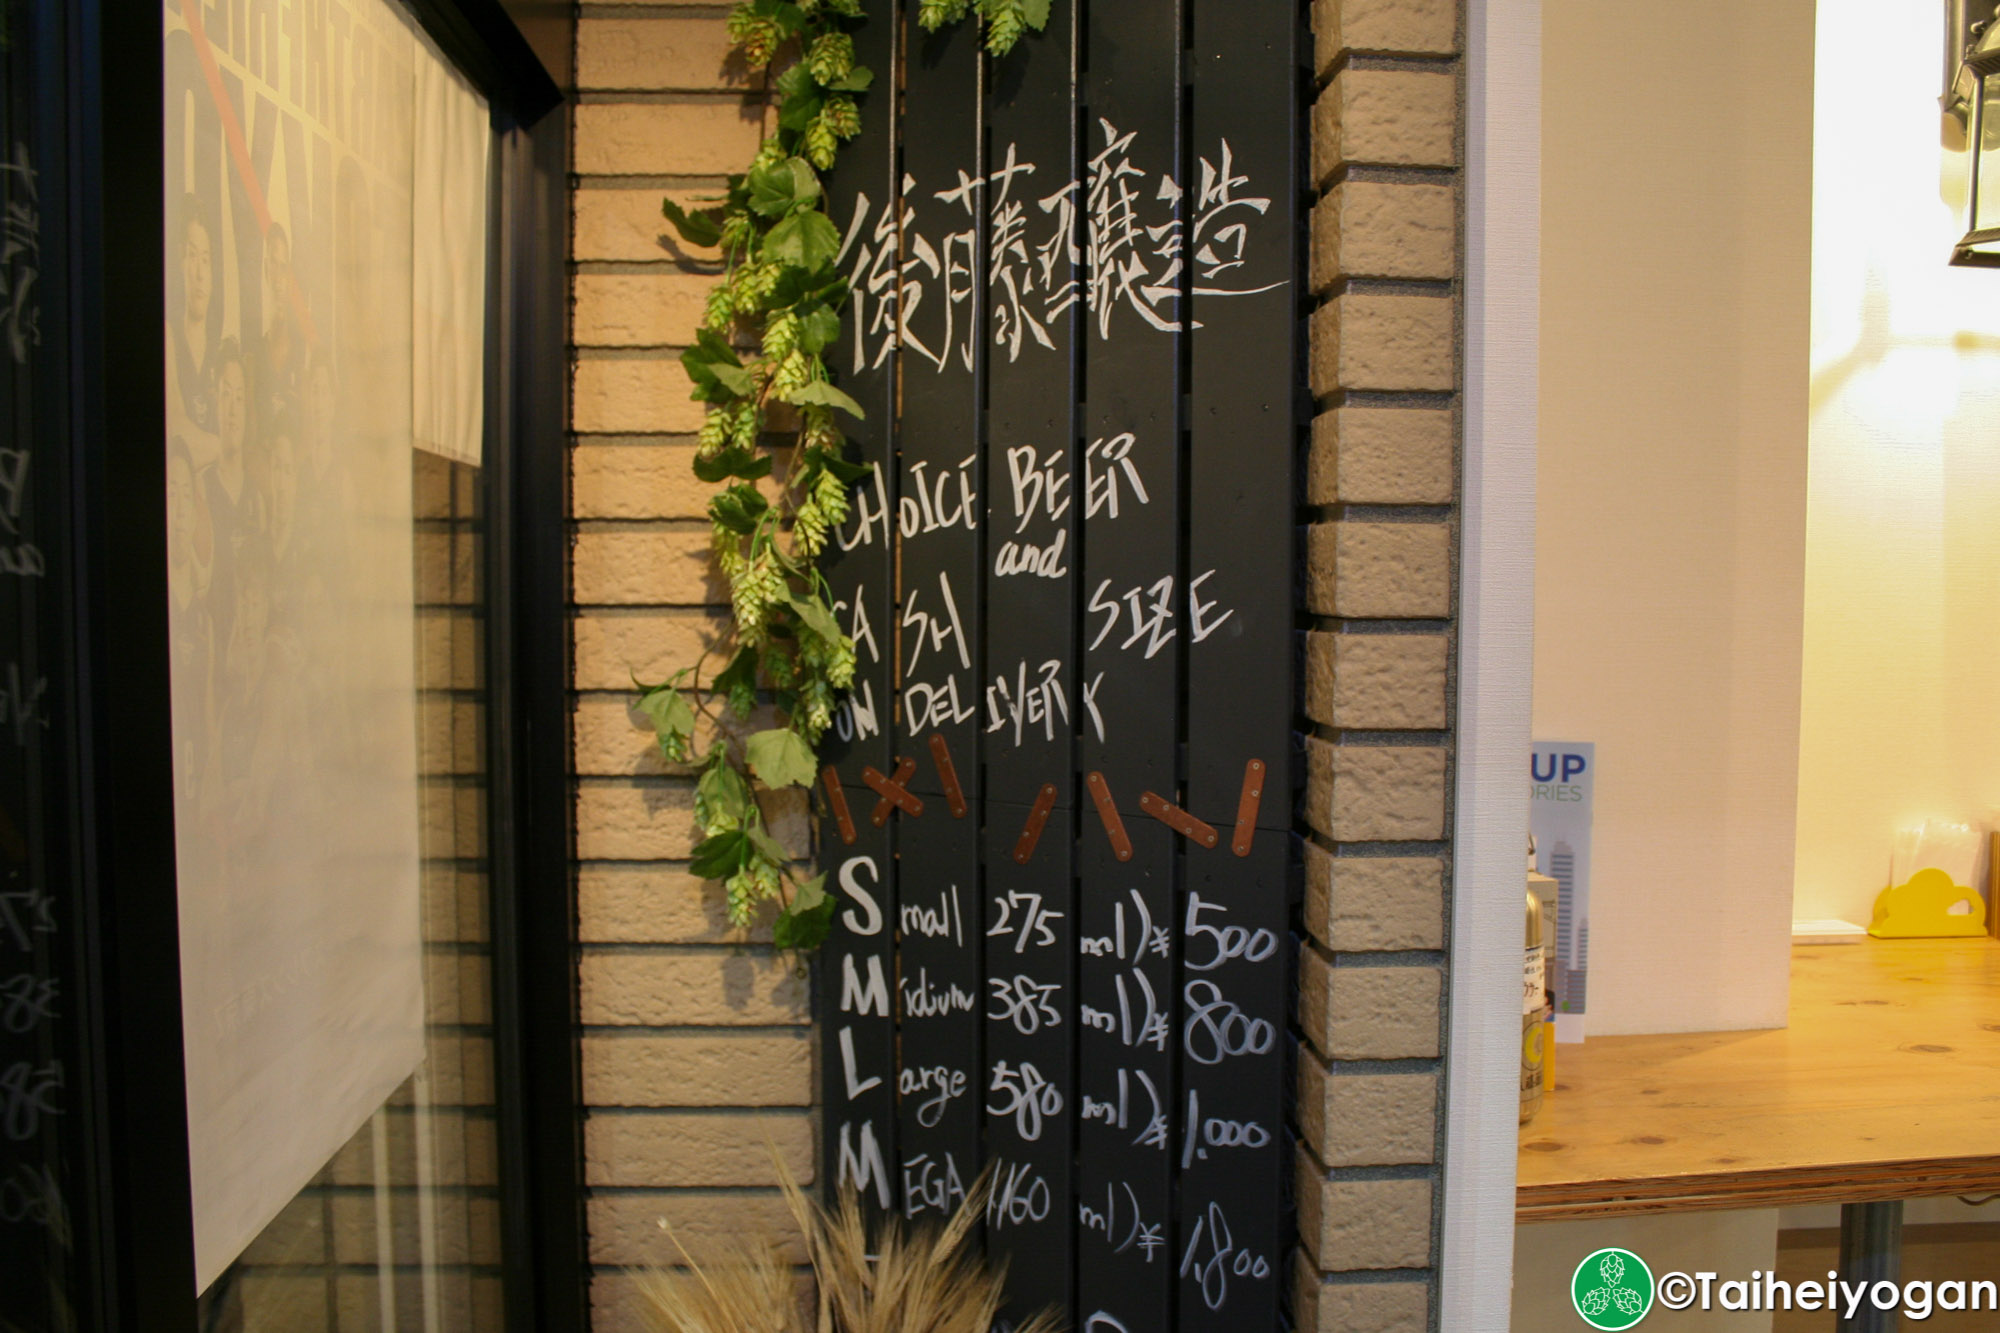 後藤醸造
CHOICE BEER
and
CASH SIZE
ON DELIVERY
Small 275 ml) ¥ 500
Midium 385 ml) ¥ 800
Large 580 ml) ¥ 1.000
MEGA 1,160 ml) ¥ 1,800
UP
ORIES
©Taiheiyogan